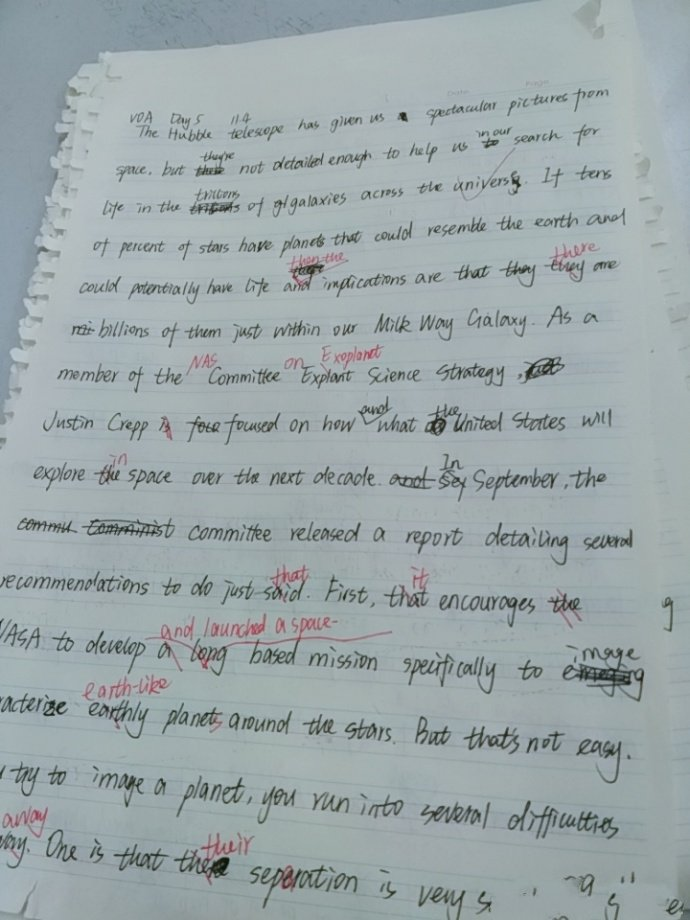 Date Page
VOA Day 5 11.4
The Hubble telescope has given us spectacular pictures from
space, but they're not detailed enough to help us in our search for
life in the trillions of galaxies across the universe. If tens
of percent of stars have planets that could resemble the earth and
then the there
could potentially have life and implications are that they they are
billions of them just within our Milk Way Galaxy. As a
NAS on Exoplanet
member of the Committee Explant Science Strategy,
Justin Crepp is focused on how and what the United States will
in
explore the space over the next decade. In September, the
committee released a report detailing several
that it
recommendations to do just said. First, that encourages the
and launched a space-
NASA to develop a long based mission specifically to image
earth-like
racterize earthly planets around the stars. But that's not easy.
try to image a planet, you run into several difficulties
away
way. One is that their separation is very